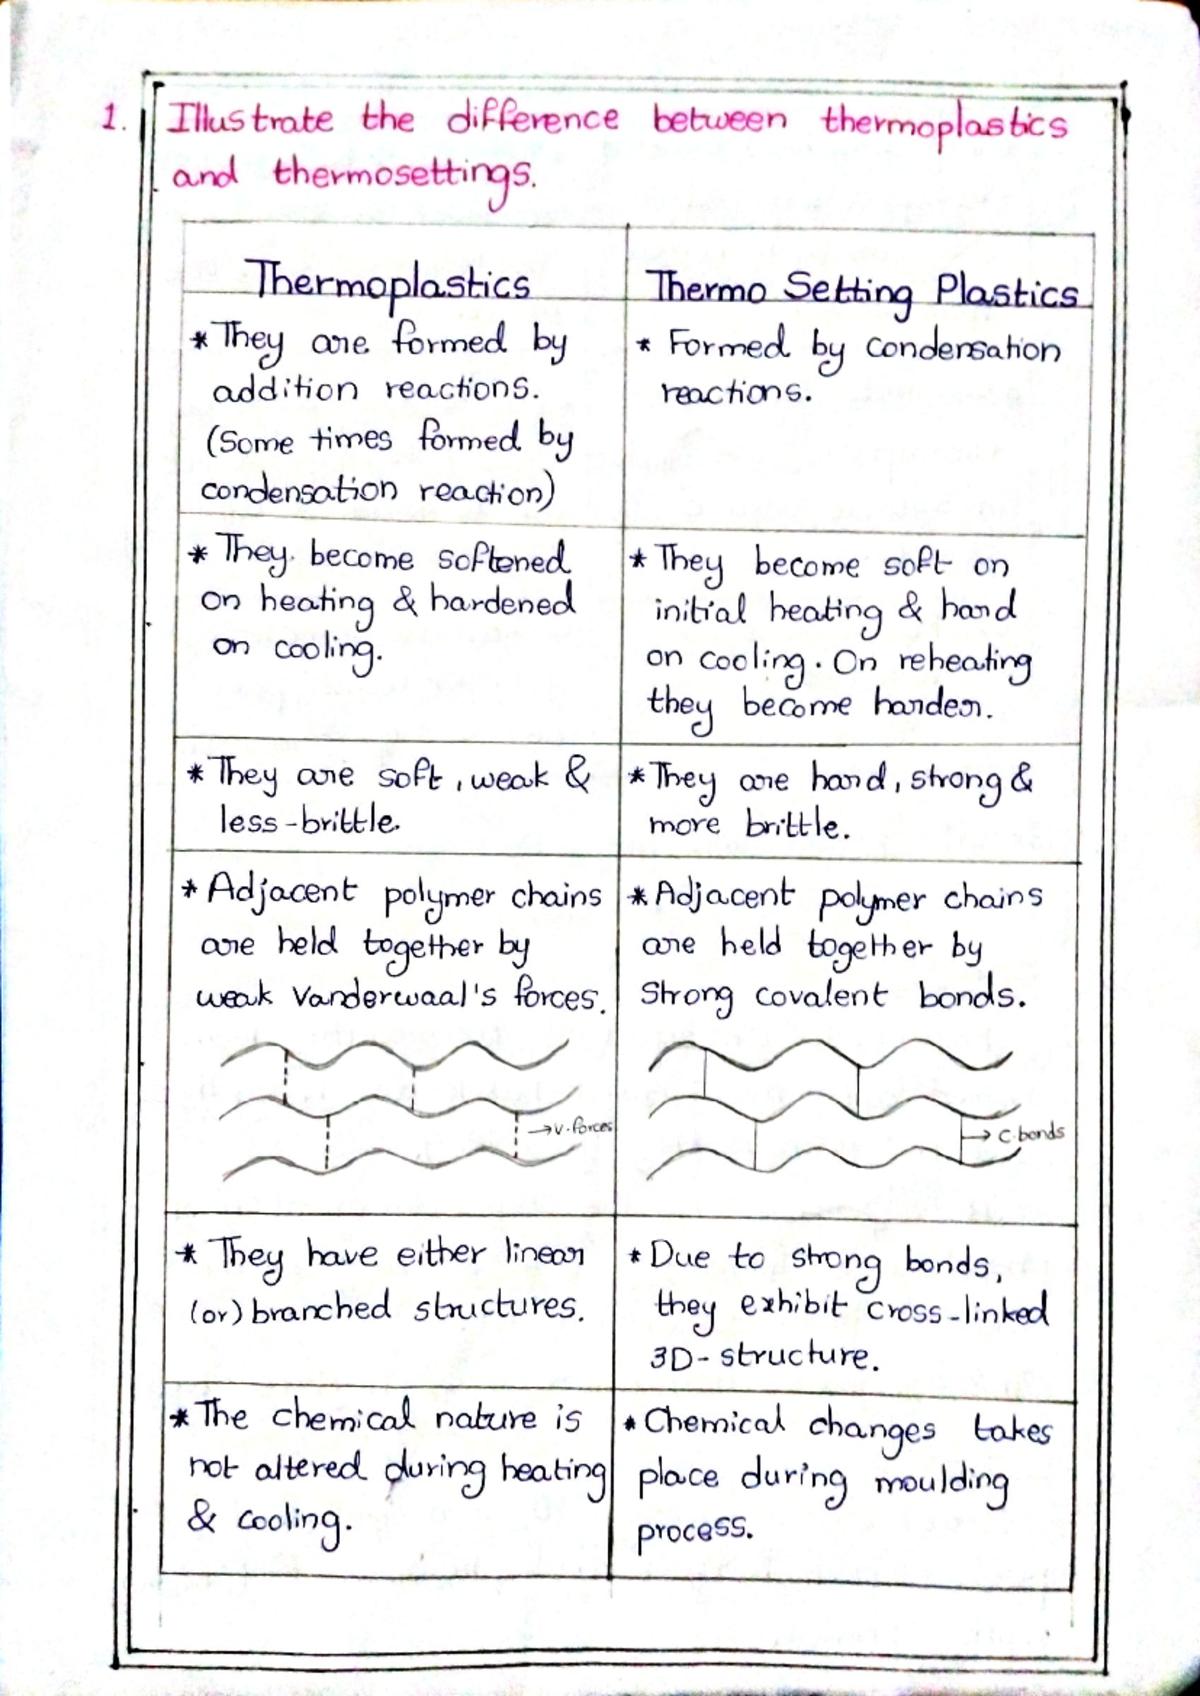 1. Illustrate the difference between thermoplastics
and thermosettings.
Thermoplastics
* They are formed by
addition reactions.
(Some times formed by
condensation reaction)
Thermo Setting Plastics
* Formed by condensation
reactions.
* They become softened
on heating & hardened
on cooling.
* They become soft on
initial heating & hard
on cooling. On reheating
they become harder.
* They are soft, weak &
less-brittle.
* They are hard, strong &
more brittle.
* Adjacent polymer chains
are held together by
weak Vanderwaal's forces.
→ V.forces
* Adjacent polymer chains
are held together by
Strong covalent bonds.
→ C.bonds
* They have either linear
(or) branched structures.
* Due to strong bonds,
they exhibit cross-linked
3D- structure.
* The chemical nature is
not altered during heating
& cooling.
* Chemical changes takes
place during moulding
process.